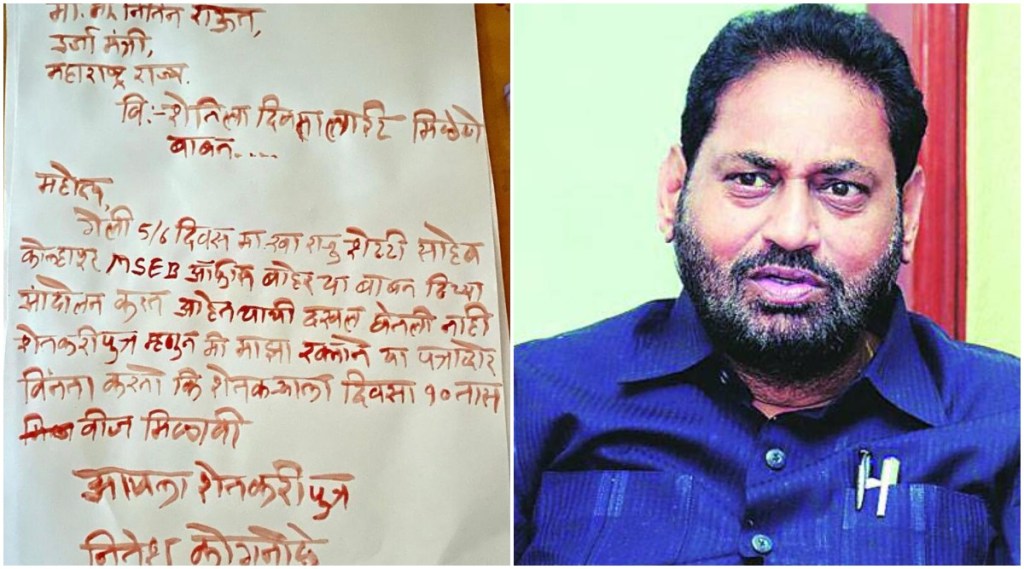 मा. ना. नितिन राऊत,
उर्जा मंत्री,
महाराष्ट्र राज्य.
वि:- शेतिला दिवसा लाईट मिळणे
बाबत....
महोदय,
गेली 5/6 दिवस मा. खा राजु शेट्टी साहेब
कोल्हापूर MSEB ऑफीस बाहेर या बाबत ठिय्या
आंदोलन करत आहेत याची दखल घेतली नाही
शेतकरीपुत्र म्हणुन मी माझा रक्ताने या पत्राव्दारे
विनंती करतो कि शेतकऱ्याला दिवसा १० तास
वीज मिळावी
आपला शेतकरीपुत्र
नितेश कोगनोळे